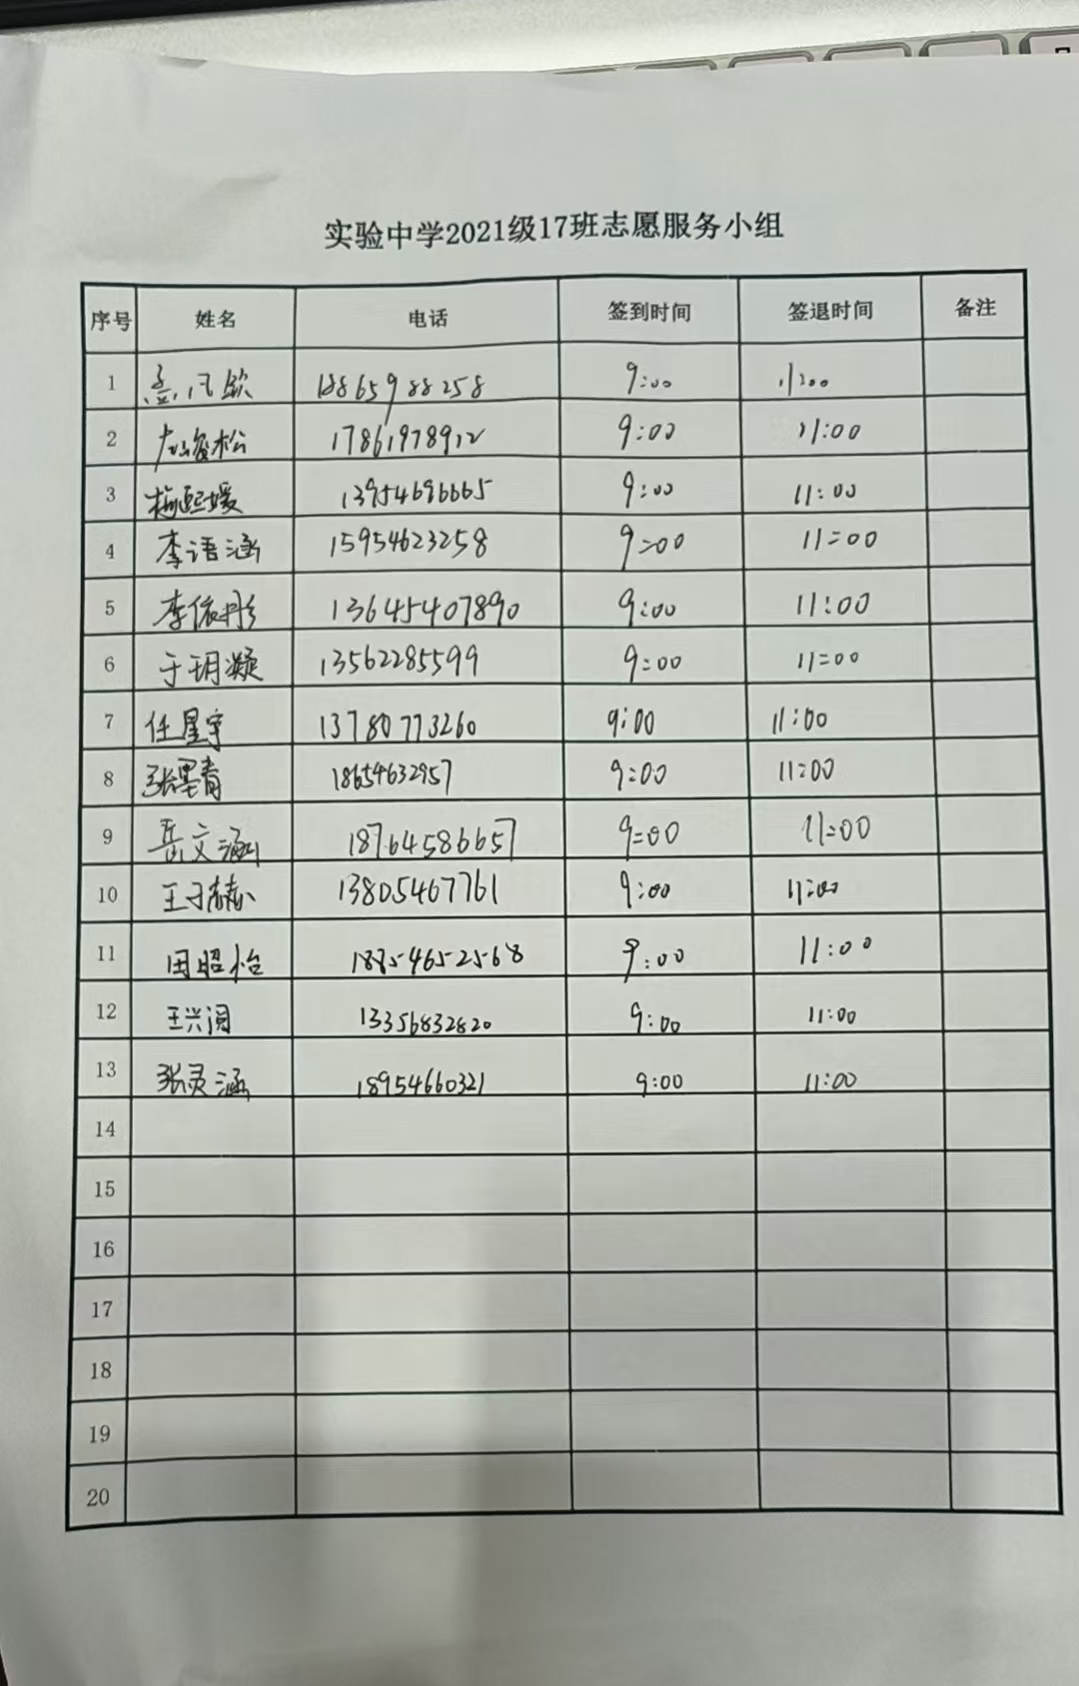 实验中学2021级17班志愿服务小组
序号 姓名 电话 签到时间 签退时间 备注
1 孟凡钦 18865988258 9:00 11:00
2 松 17861978912 9:00 11:00
3 梅熙媛 13954696665 9:00 11:00
4 李语涵 15954623258 9:00 11:00
5 李依彤 13645407890 9:00 11:00
6 于玥凝 13562285599 9:00 11:00
7 任星宇 13780773260 9:00 11:00
8 张墨青 18654632957 9:00 11:00
9 岳文涵 18764586657 9:00 11:00
10 王子赫 13805467761 9:00 11:00
11 田昭怡 9:00 11:00
12 王兴润 13356832820 9:00 11:00
13 张灵涵 18954660321 9:00 11:00
14
15
16
17
18
19
20